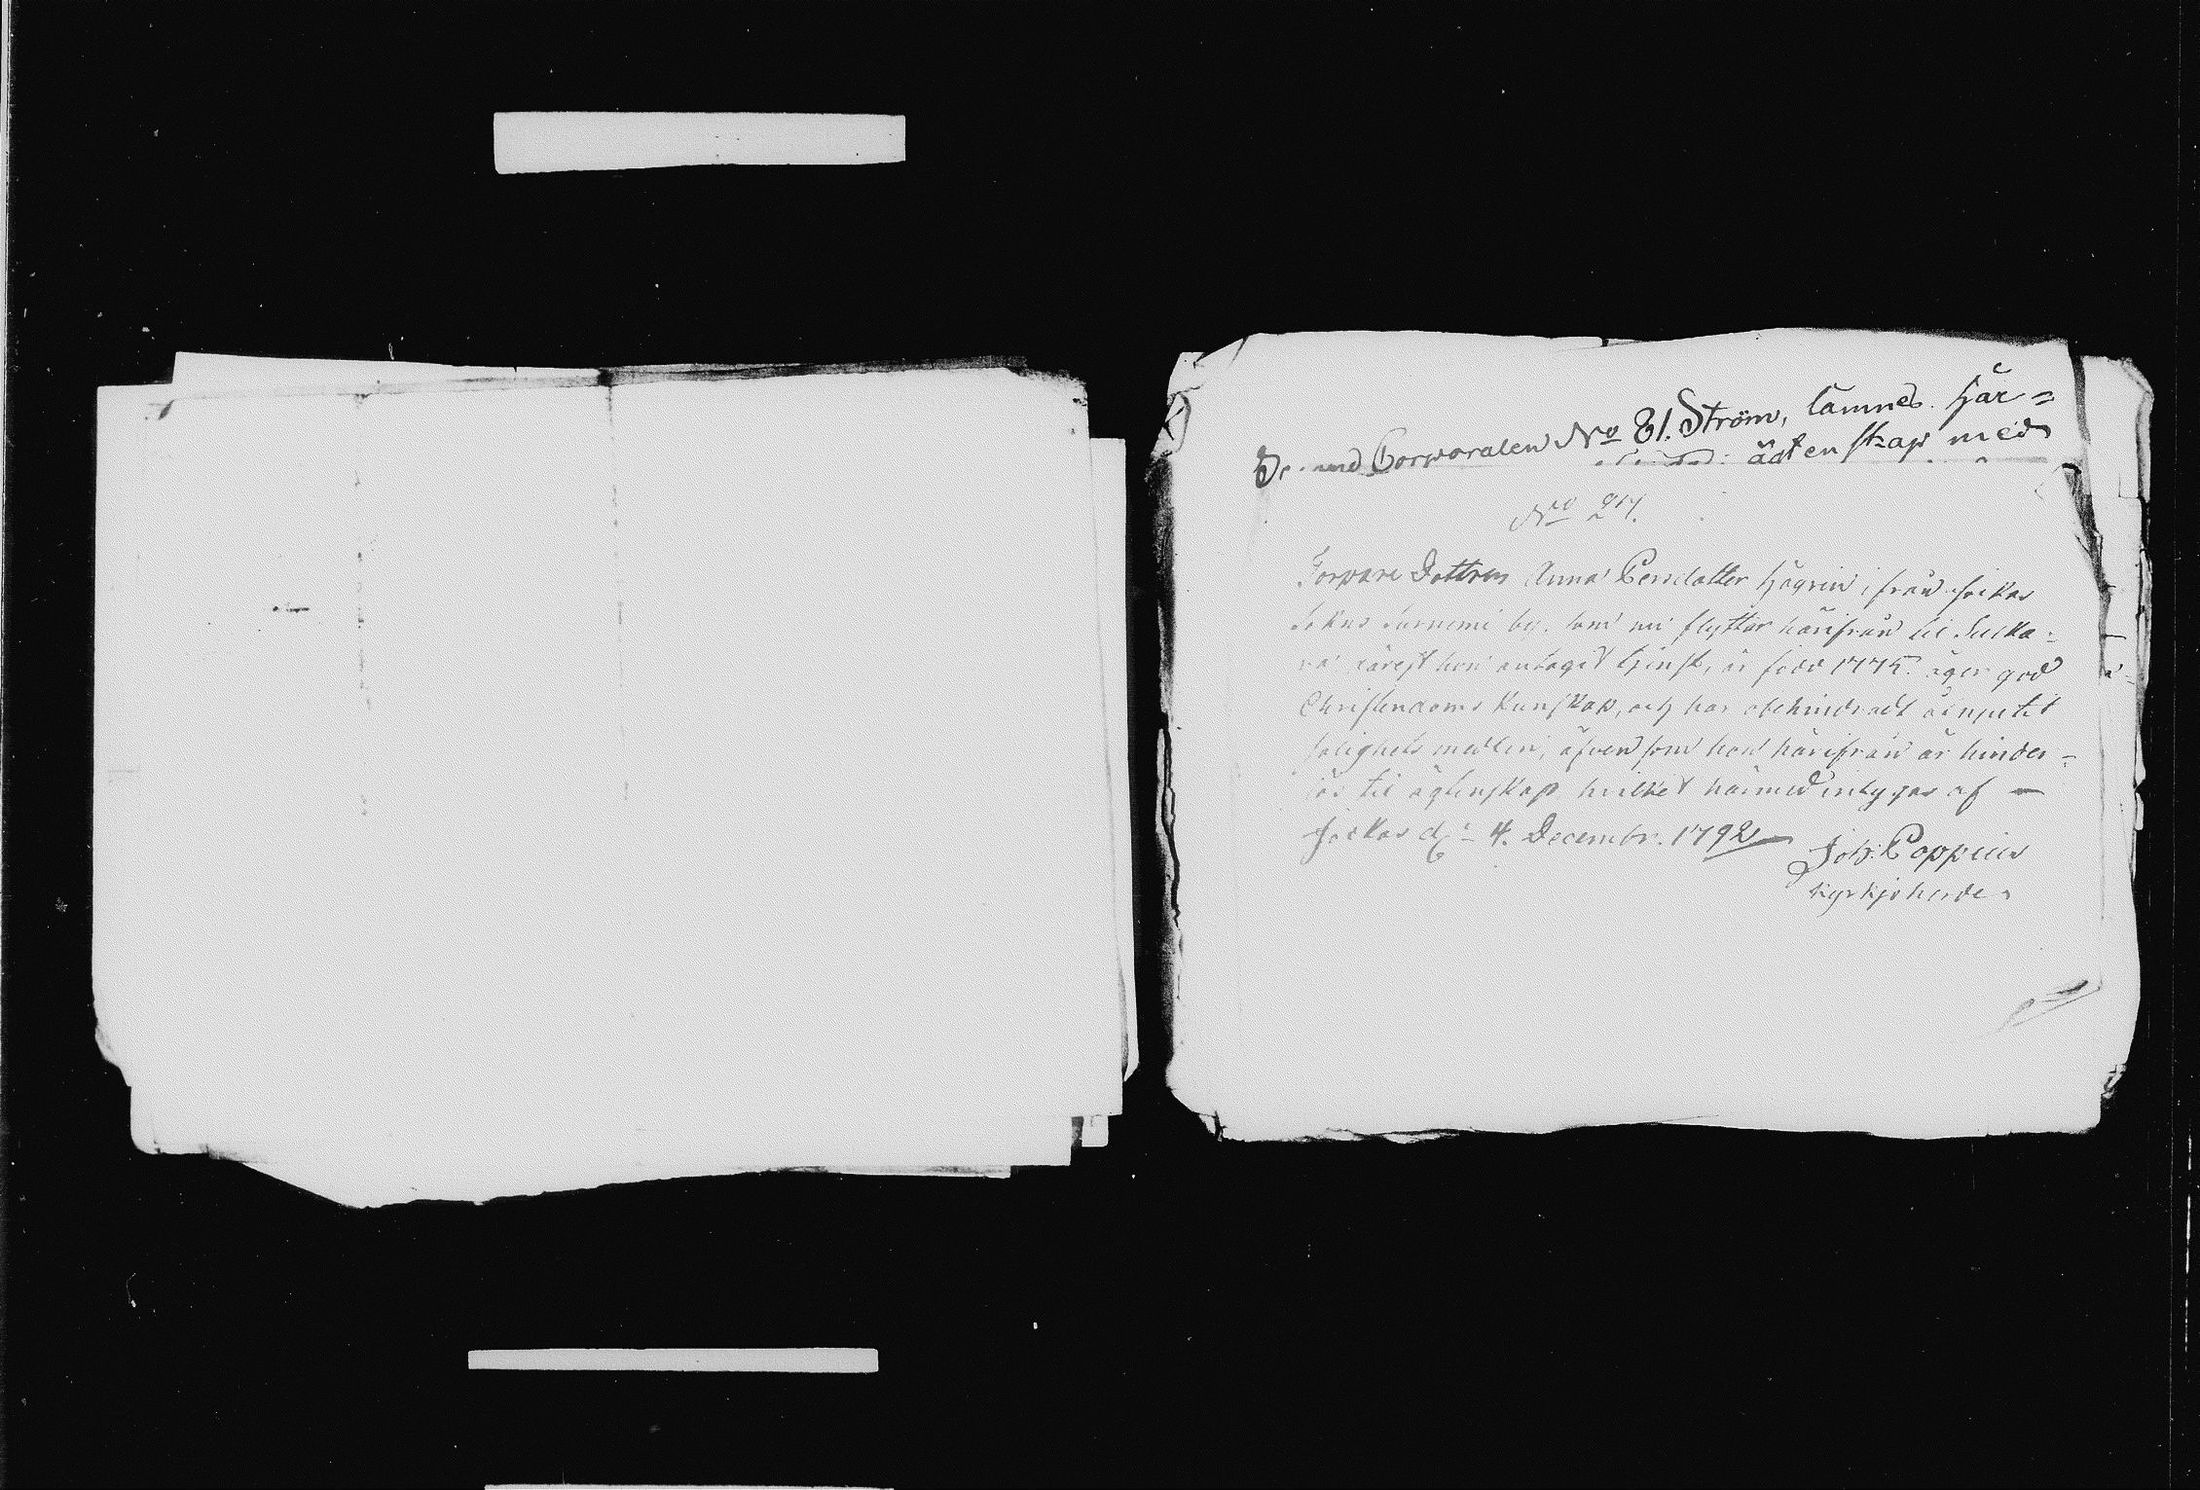 Corporalen No 81. Ström, lämnes här=
ägtenskap med
No 27.
Torpare Dottren Anna Persdotter Högrin, ifrån Jockas
Sokns by, som nu flyttar härifrån til Sulka-
va därest hon antagit tjenst, är född 1775. äger god
Christendoms kunskap, och har obehindradt åtnjutit
salighets medlen, äfven som hon härifrån är hinder-
lös til ägtenskap hvilket härmed intygas af —
Jockas d. 4. Decembr. 1792
Joh. Poppius
Kyrkjoherde